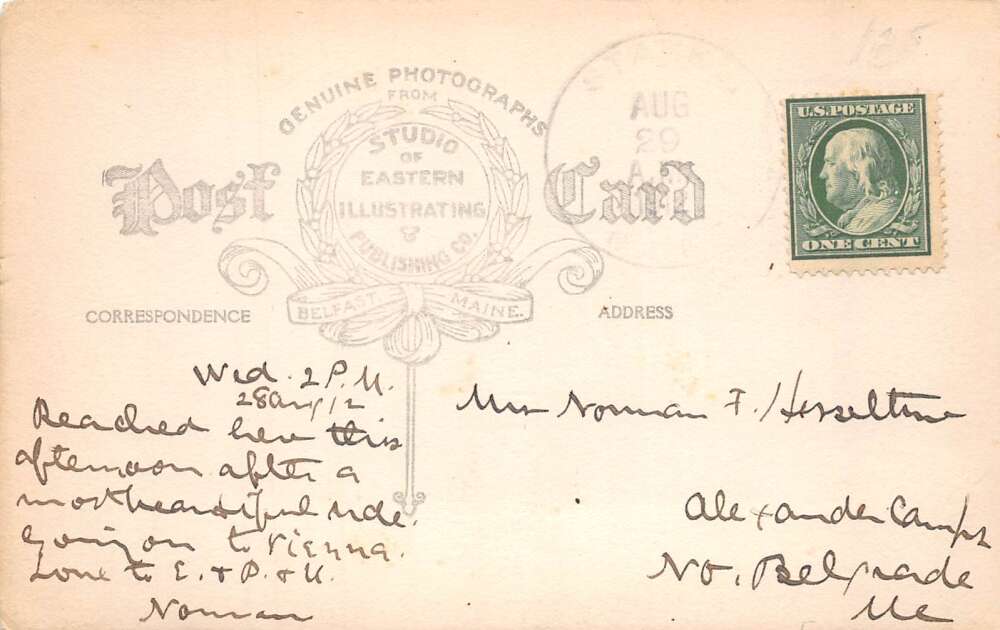 135
GENUINE PHOTOGRAPHS
FROM
STUDIO
OF
EASTERN
ILLUSTRATING
&
PUBLISHING CO.
BELFAST, MAINE.
Post Card
AUG
29
U.S. POSTAGE
ONE CENT
CORRESPONDENCE
ADDRESS
Wed. 2 P.M.
28 Aug 12
Reached here this
afternoon after a
most beautiful ride.
Going on to Vienna.
Love to E. + P. + M.
Norman
Mrs Norman F. Hesseltine
Alexander Camps
No. Belgrade
Me